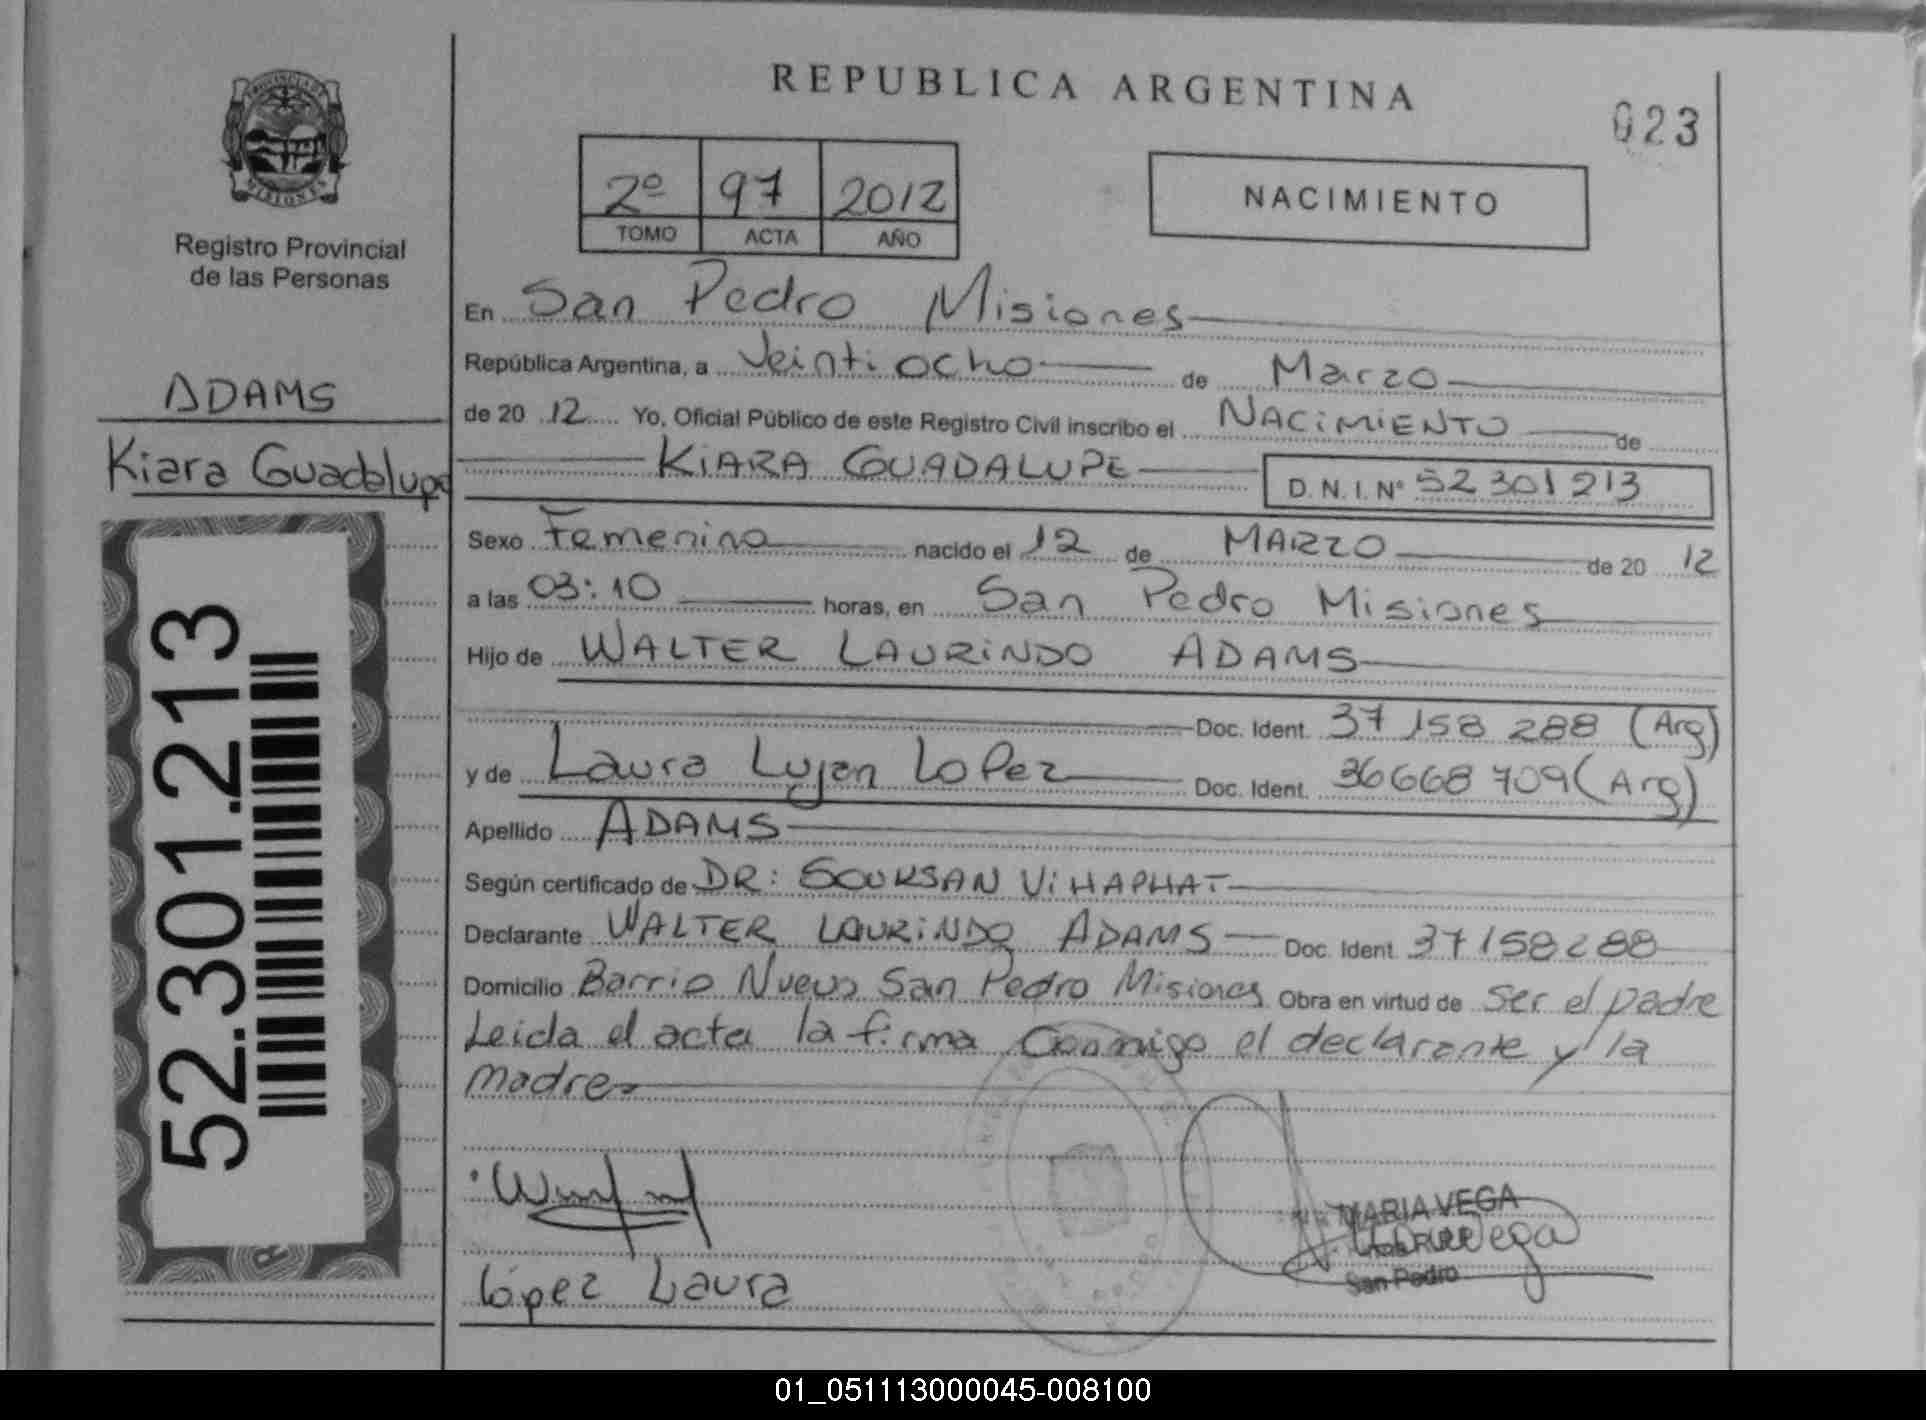 REPUBLICA ARGENTINA
023
PROVINCIA DE
MISIONES
Registro Provincial
de las Personas
2º 97 2012
TOMO ACTA AÑO
NACIMIENTO
ADAMS
Kiara Guadalupe
52.301.213
En San Pedro Misiones
República Argentina, a Veintiocho de Marzo
de 20 12 Yo, Oficial Público de este Registro Civil inscribo el NACIMIENTO de
KIARA GUADALUPE D.N.I. Nº 52 301 213
Sexo Femenino nacido el 12 de MARZO de 20 12
a las 03:10 horas, en San Pedro Misiones
Hijo de WALTER LAURINDO ADAMS
Doc. Ident. 37 158 288 (Arg)
y de Laura Lujan Lopez Doc. Ident. 36668 709 (Arg)
Apellido ADAMS
Según certificado de DR: SOURSAN VIHAPHAT
Declarante WALTER LAURINDO ADAMS Doc. Ident. 37158288
Domicilio Barrio Nuevo San Pedro Misiones Obra en virtud de ser el padre
Leida el acta la firma conmigo el declarante y la
madre
MARIA VEGA
San Pedro
López Laura
01_051113000045-008100